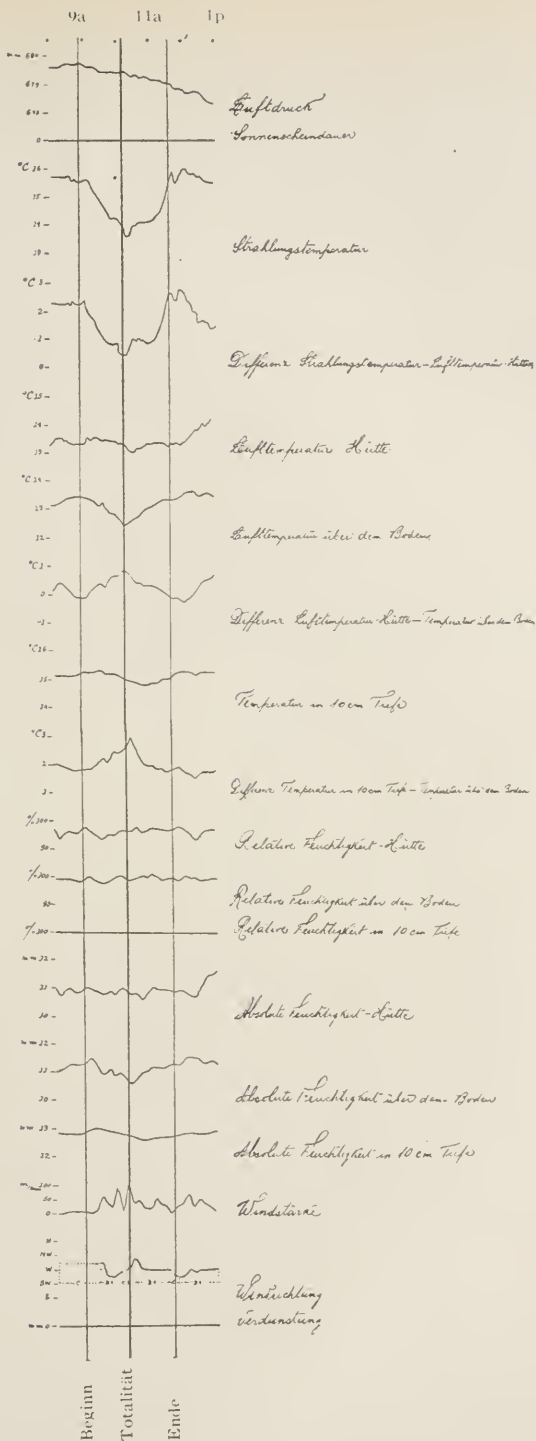 9a 11a 1p
mm 680
679
678
0
Luftdruck
Sonnenscheindauer
°C 16
15
14
13
Strahlungstemperatur
°C 3
2
1
0
Differenz Strahlungstemperatur – Lufttemperatur-Hütte
°C 15
14
13
Lufttemperatur Hütte
°C 14
13
12
Lufttemperatur über dem Boden
°C 1
0
-1
Differenz Lufttemperatur-Hütte – Temperatur über dem Boden
°C 16
15
14
Temperatur in 10 cm Tiefe
°C 3
2
1
Differenz Temperatur in 10 cm Tiefe – Temperatur über dem Boden
% 100
90
Relative Feuchtigkeit - Hütte
% 100
90
Relative Feuchtigkeit über dem Boden
% 100
Relative Feuchtigkeit in 10 cm Tiefe
mm 12
11
10
Absolute Feuchtigkeit - Hütte
mm 12
11
10
Absolute Feuchtigkeit über dem Boden
mm 13
12
Absolute Feuchtigkeit in 10 cm Tiefe
100
50
0
Windstärke
N
NW
W
SW
S
Windrichtung
mm 0
Verdunstung
Beginn
Totalität
Ende